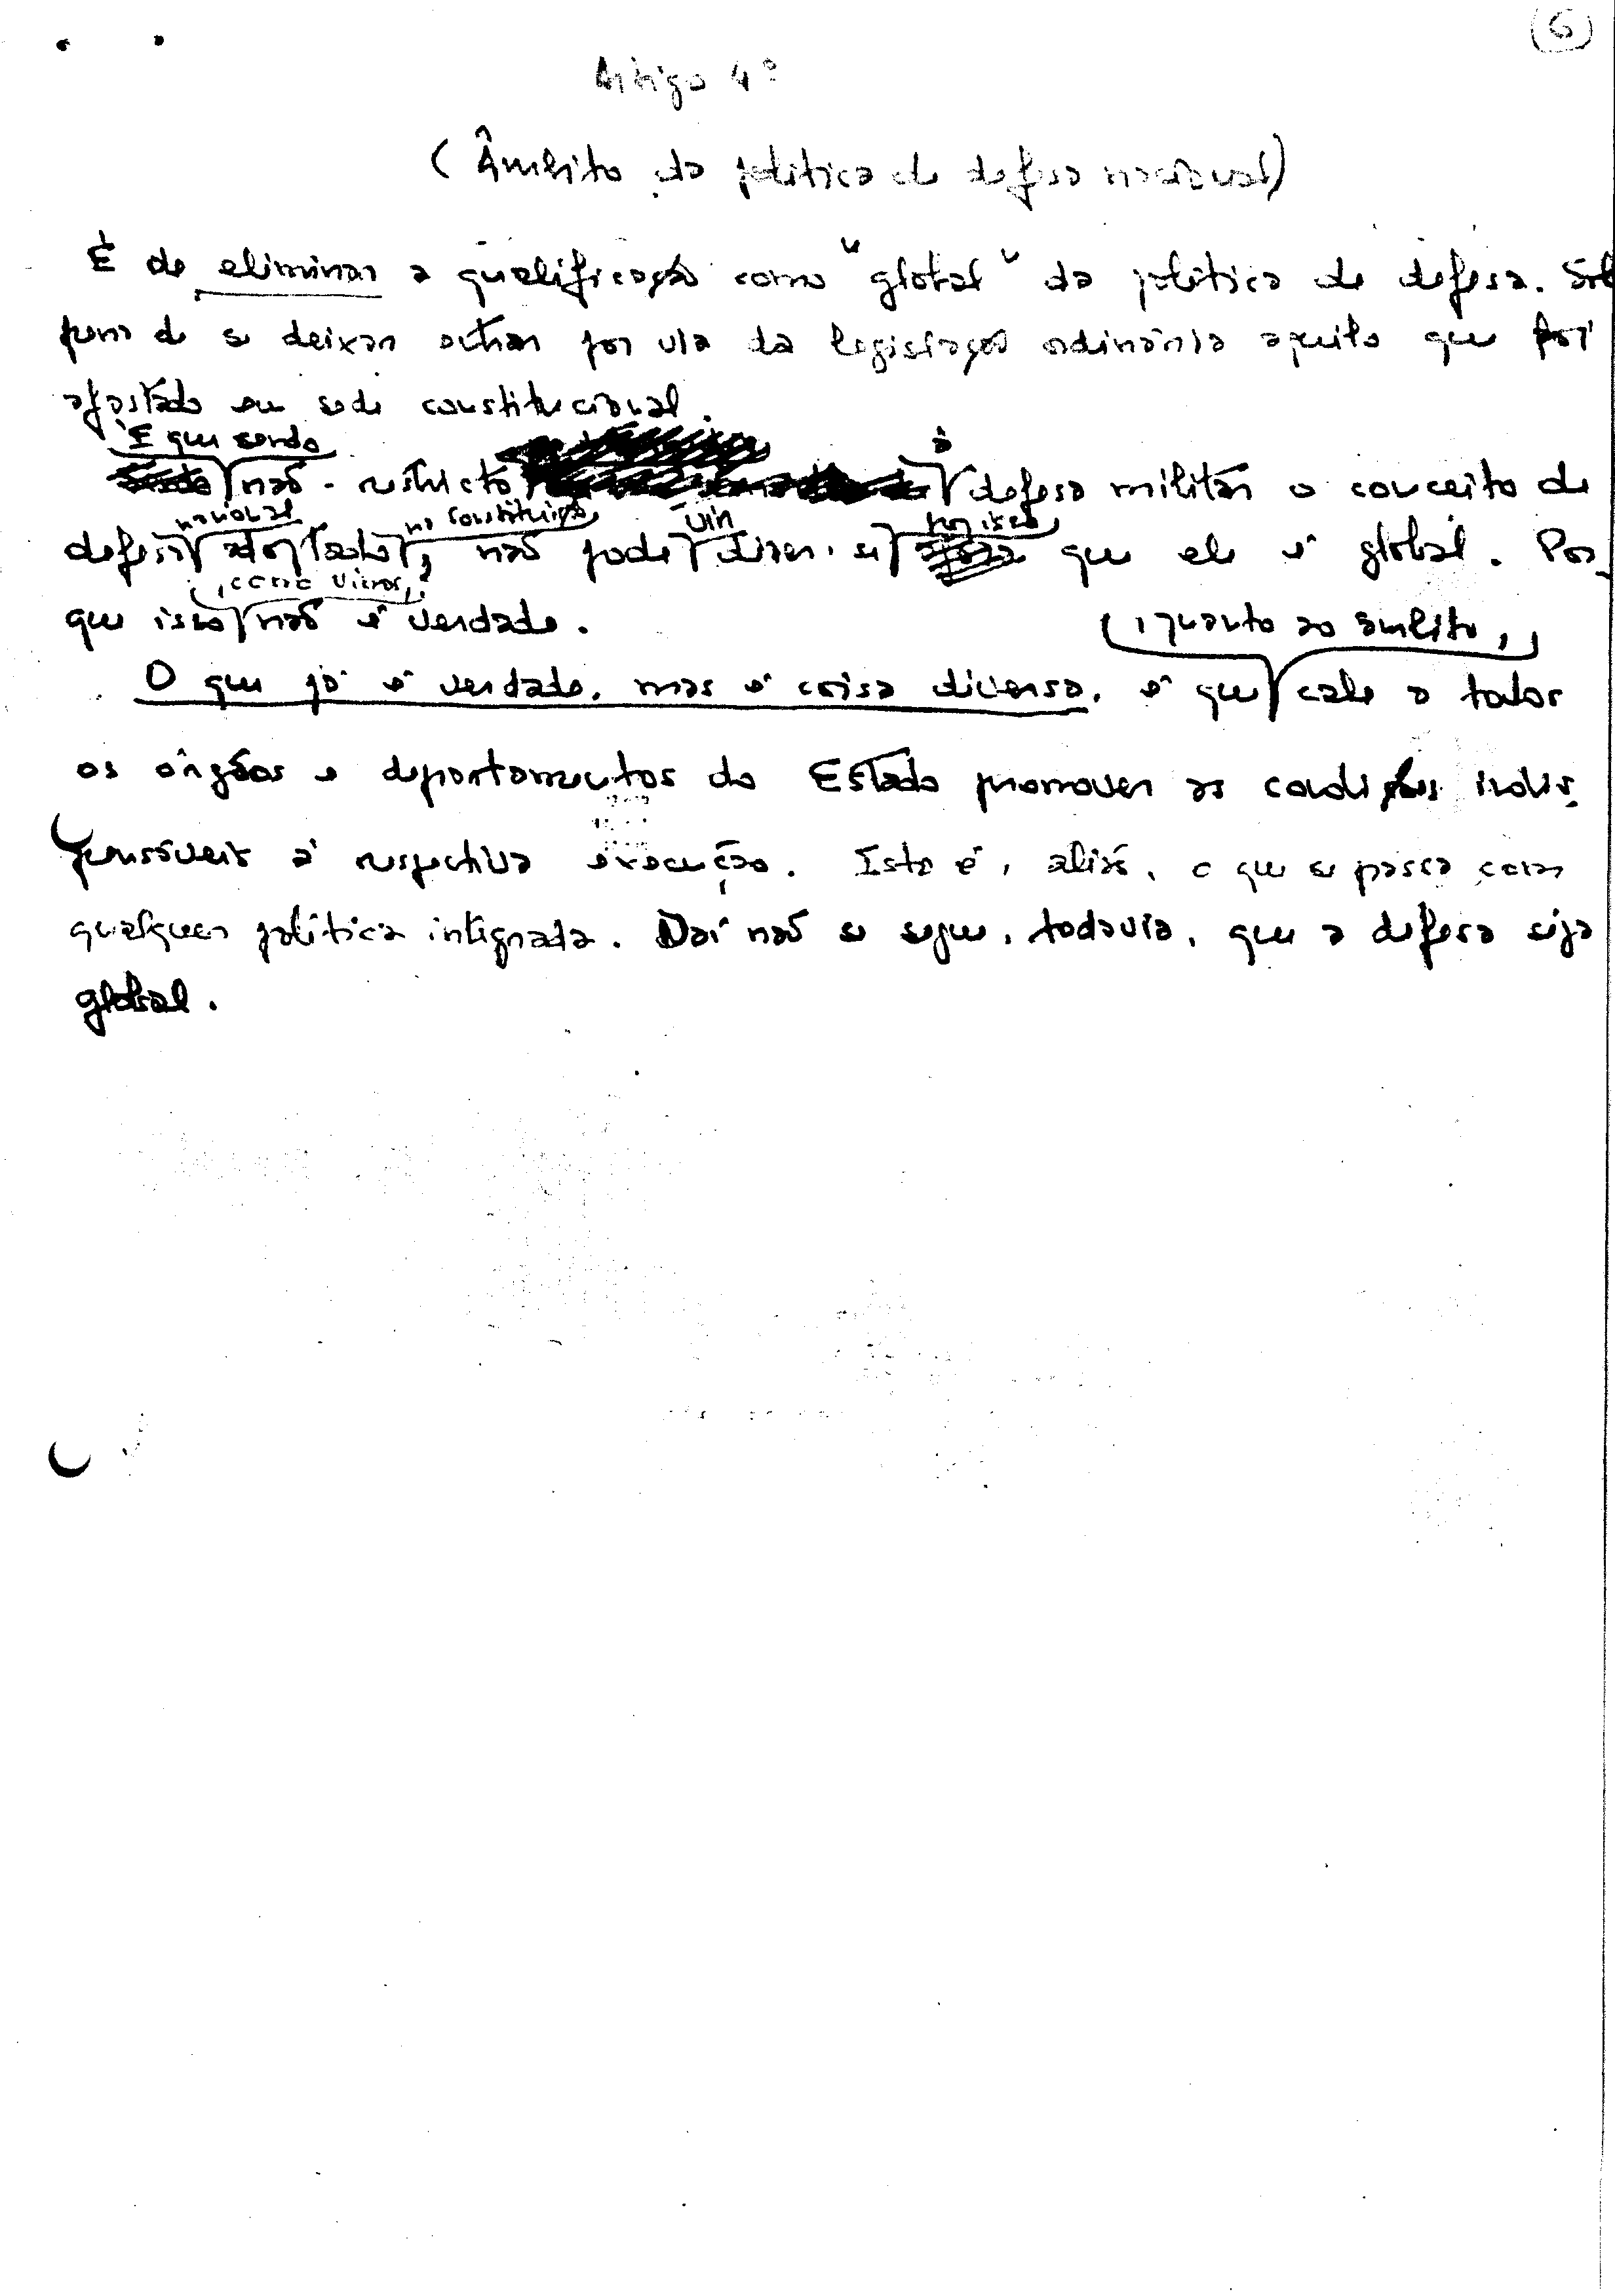 (6)
Artigo 4º
(Âmbito da política de defesa nacional)
É de eliminar a qualificação como "global" da política de defesa. Sob
pena de se deixar entrar por via da legislação ordinária aquilo que foi
afastado em sede constitucional.
É que sendo não - restricto à defesa militar o conceito de
defesa nacional adoptado na Constituição, não pode vir dizer-se por isso que ele é global. Por-
que isso, como vimos, não é verdade.
O que já é verdade, mas é coisa diversa, é que, quanto ao âmbito, cabe a todos
os órgãos e departamentos do Estado promover as condições indis-
pensáveis à respectiva execução. Isto é, aliás, o que se passa com
qualquer política integrada. Daí não se segue, todavia, que a defesa seja
global.